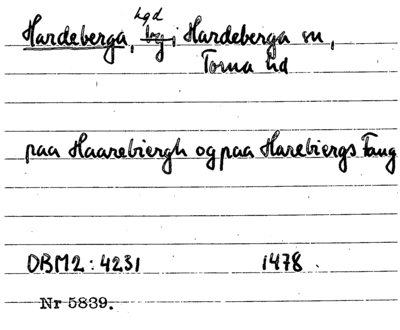 hgd
Hardeberga, by i Hardeberga sn,
Torna hd
paa Haarebiergh og paa Harebiergs Fang
DBM2: 4231 1478.
Nr 5839.